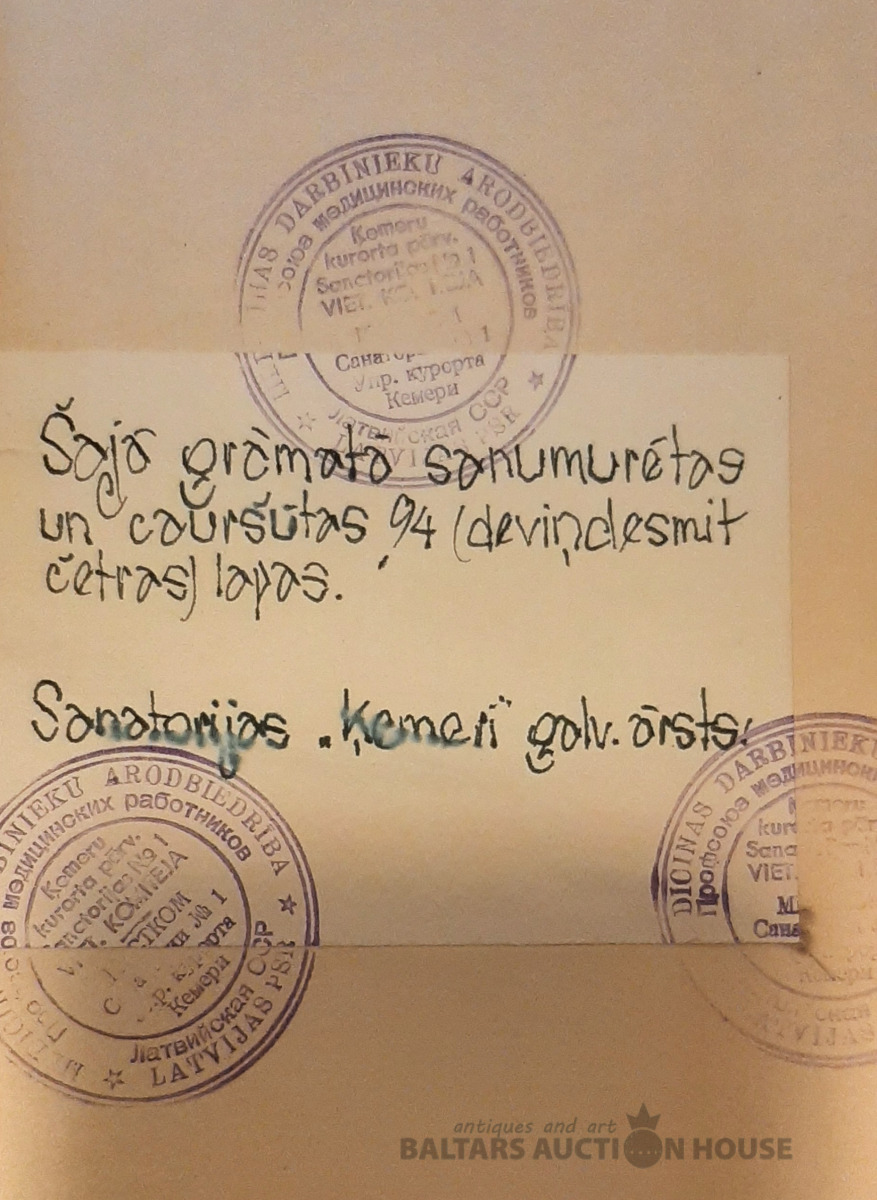 DARBINIEKU ARODBIEDRĪBA
союз медицинских работников
Ķemeru
kurorta pārv.
Sanatorijas № 1
VIET. KOMITEJA
Упр. курорта
Кемери
Латвийская ССР
LATVIJAS PSR
Šajā grāmatā sanumurētas
un caūršūtas 94 (deviņdesmit
četras) lapas.
Sanatorijas „Ķemeri" galv. ārsts:
ARODBIEDRĪBA
медицинских работников
Ķemeru
kurorta pārv.
Sanatorijas № 1
VIET. KOMITEJA
МЕСТКОМ
№ 1
Упр. курорта
Кемери
Латвийская ССР
LATVIJAS PSR
DARBINIEKU
Профсоюз медицинских
Ķemeru
VIET.
antiques and art
BALTARS AUCTION HOUSE